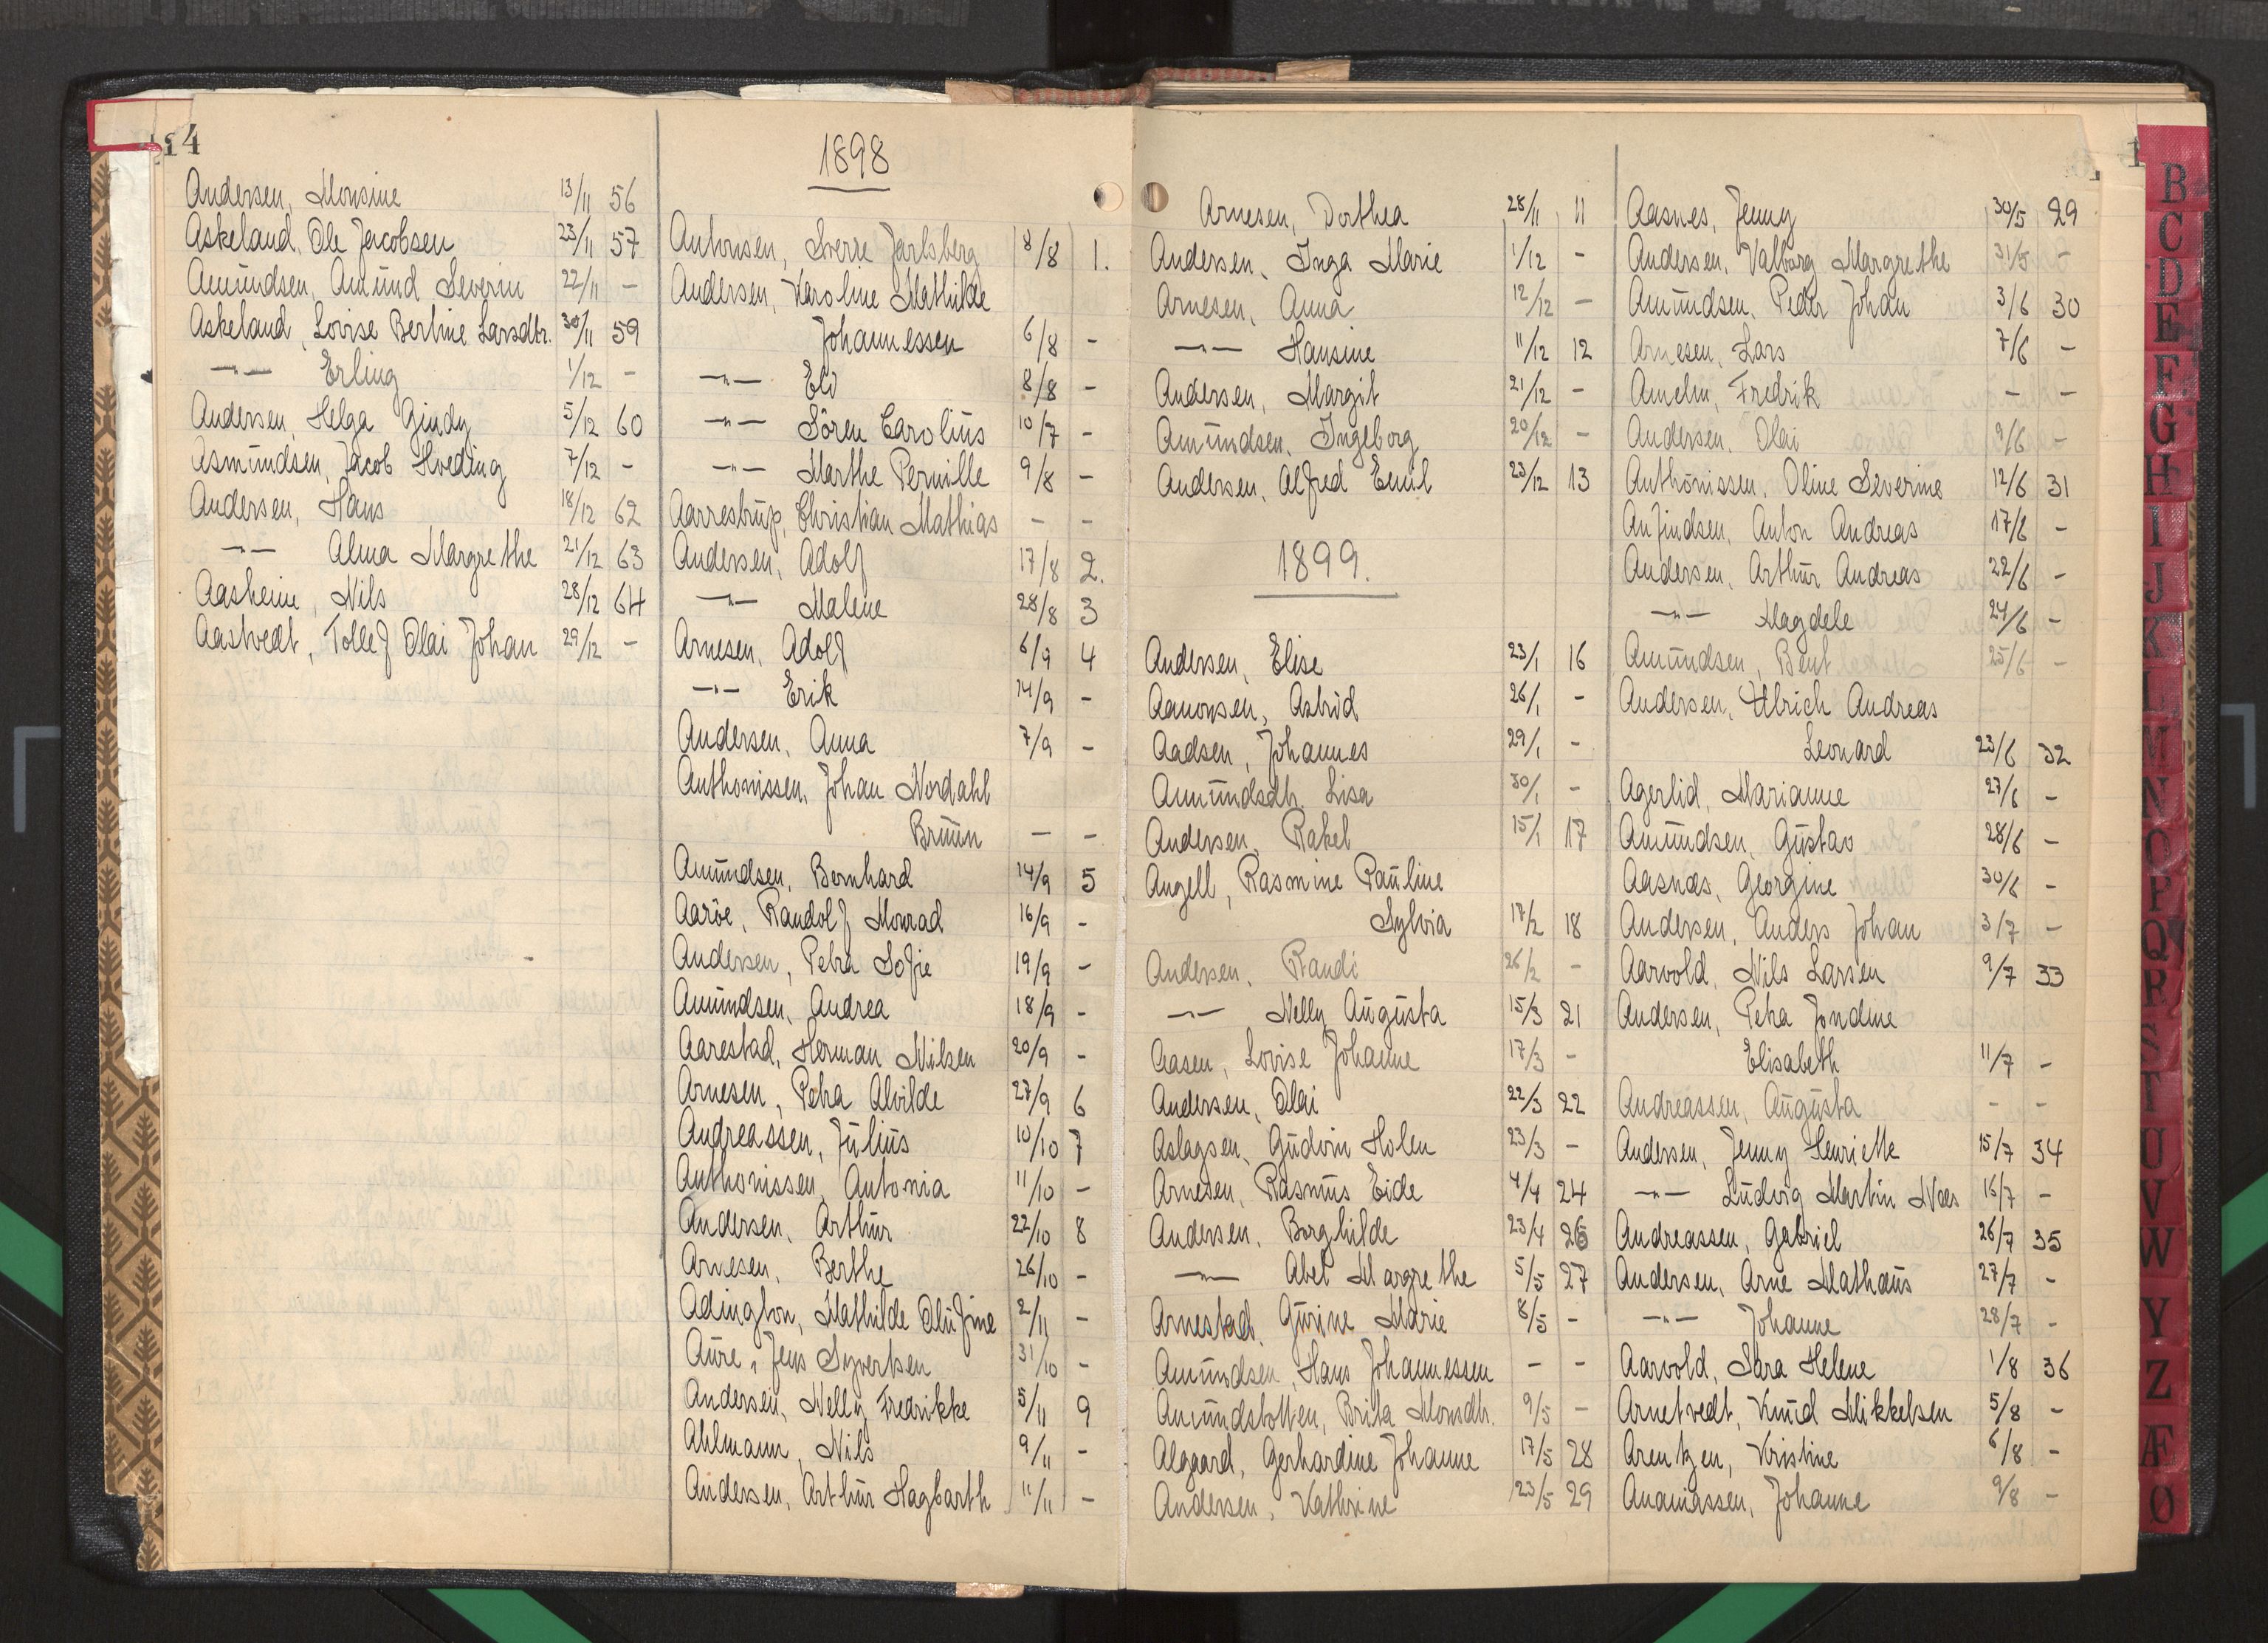 14
Andersen, Monsine 13/11 56
Askeland, Ole Jacobsen 23/11 57
Amundsen, Amund Severin 22/11 -
Askeland, Lovise Bertine Larsdtr. 30/11 59
-"- Erling 1/12 -
Andersen, Helga Gindy 5/12 60
Asmundsen, Jacob Hveding 7/12 -
Andersen, Hans 18/12 62
-"- Alma Margrethe 21/12 63
Aasheim, Nils 28/12 64
Aastvedt, Tollef Olai Johan 29/12 -
1898
Antonsen, Sverre Jarlsberg 8/8 1.
Andersen, Karoline Mathilde
Johannessen 6/8 -
-"- Eli 8/8 -
-"- Sören Carolius 10/7 -
-"- Marthe Pernille 9/8 -
Aarrestrup, Christian Mathias - -
Andersen, Adolf 17/8 2.
-"- Malene 28/8 3
Arnesen, Adolf 6/9 4
-"- Erik 14/9 -
Andersen, Anna 7/9 -
Anthonissen, Johan Nordahl
Bruun - -
Amundsen, Bernhard 14/9 5
Aaröe, Randolf Monrad 16/9 -
Andersen, Petra Sofie 19/9 -
Amundsen, Andrea 18/9 -
Aarestad, Herman Nilsen 20/9 -
Arnesen, Petra Alvilde 27/9 6
Andreassen, Julius 10/10 7
Anthonissen, Antonia 11/10 -
Andersen, Arthur 22/10 8
Arnesen, Berthe 26/10 -
Adington, Mathilde Olufine 2/11 -
Aure, Jens Syvertsen 31/10 -
Andersen, Nelly Fredrikke 5/11 9
Ahlmann, Nils 9/11 -
Andersen, Arthur Hagbarth 11/11 -
Arnesen, Dorthea 28/11 11
Andersen, Inga Marie 1/12 -
Arnesen, Anna 12/12 -
-"- Hansine 11/12 12
Andersen, Margit 21/12 -
Amundsen, Ingeborg 20/12 -
Andersen, Alfred Emil 23/12 13
1899.
Andersen, Elise 23/1 16
Aanonsen, Astrid 26/1 -
Aadsen, Johannes 29/1 -
Amundsdtr. Lisa 30/1 -
Andersen, Rakel 15/1 17
Angell, Rasmine Pauline
Sylvia 17/2 18
Andersen, Randi 26/2 -
-"- Nelly Augusta 15/3 21
Aasen, Lovise Johanne 17/3 -
Andersen, Olai 22/3 22
Aslagsen, Gudvin Holen 23/3 -
Arnesen, Rasmus Eide 4/4 24
Andersen, Borghilde 23/4 26
-"- Abel Margrethe 5/5 27
Arnestad, Gurine Marie 8/5 -
Amundsen, Hans Johannessen - -
Amundstotten, Brita Monsdtr. 9/5 -
Algaard, Gerhardine Johanne 17/5 28
Andersen, Kathrine 23/5 29
Aasnes, Jenny 30/5 29
Andersen, Valborg Margrethe 31/5 -
Amundsen, Peder Johan 3/6 30
Arnesen, Lars 7/6 -
Amelin, Fredrik - -
Andersen, Olai 9/6 -
Anthonissen, Oline Severine 12/6 31
Anfindsen, Anton Andreas 17/6 -
Andersen, Arthur Andreas 22/6 -
-"- Magdele 24/6 -
Amundsen, Bent 25/6 -
Andersen, Ulrich Andreas
Leonard 23/6 32
Agerlid, Marianne 27/6 -
Amundsen, Gustav 28/6 -
Aasnæs, Georgine 30/6 -
Andersen, Anders Johan 3/7 -
Aarvold, Nils Larsen 9/7 33
Andersen, Petra Jondine
Elisabeth 11/7 -
Andreassen, Augusta - -
Andersen, Jenny Henriette 15/7 34
-"- Ludvig Martin Næs 16/7 -
Andreassen, Gabriel 26/7 35
Andersen, Arne Mathæus 27/7 -
-"- Johanne 28/7 -
Aarvold, Sara Helene 1/8 36
Arnetvedt, Knud Mikkelsen 5/8 -
Arentzen, Kristine 6/8 -
Ananiassen, Johanne 9/8 -
B
C
D
E
F
G
H
I
J
K
L
M
N
O
P
Q
R
S
T
U
V
W
Y
Z
Æ
Ø